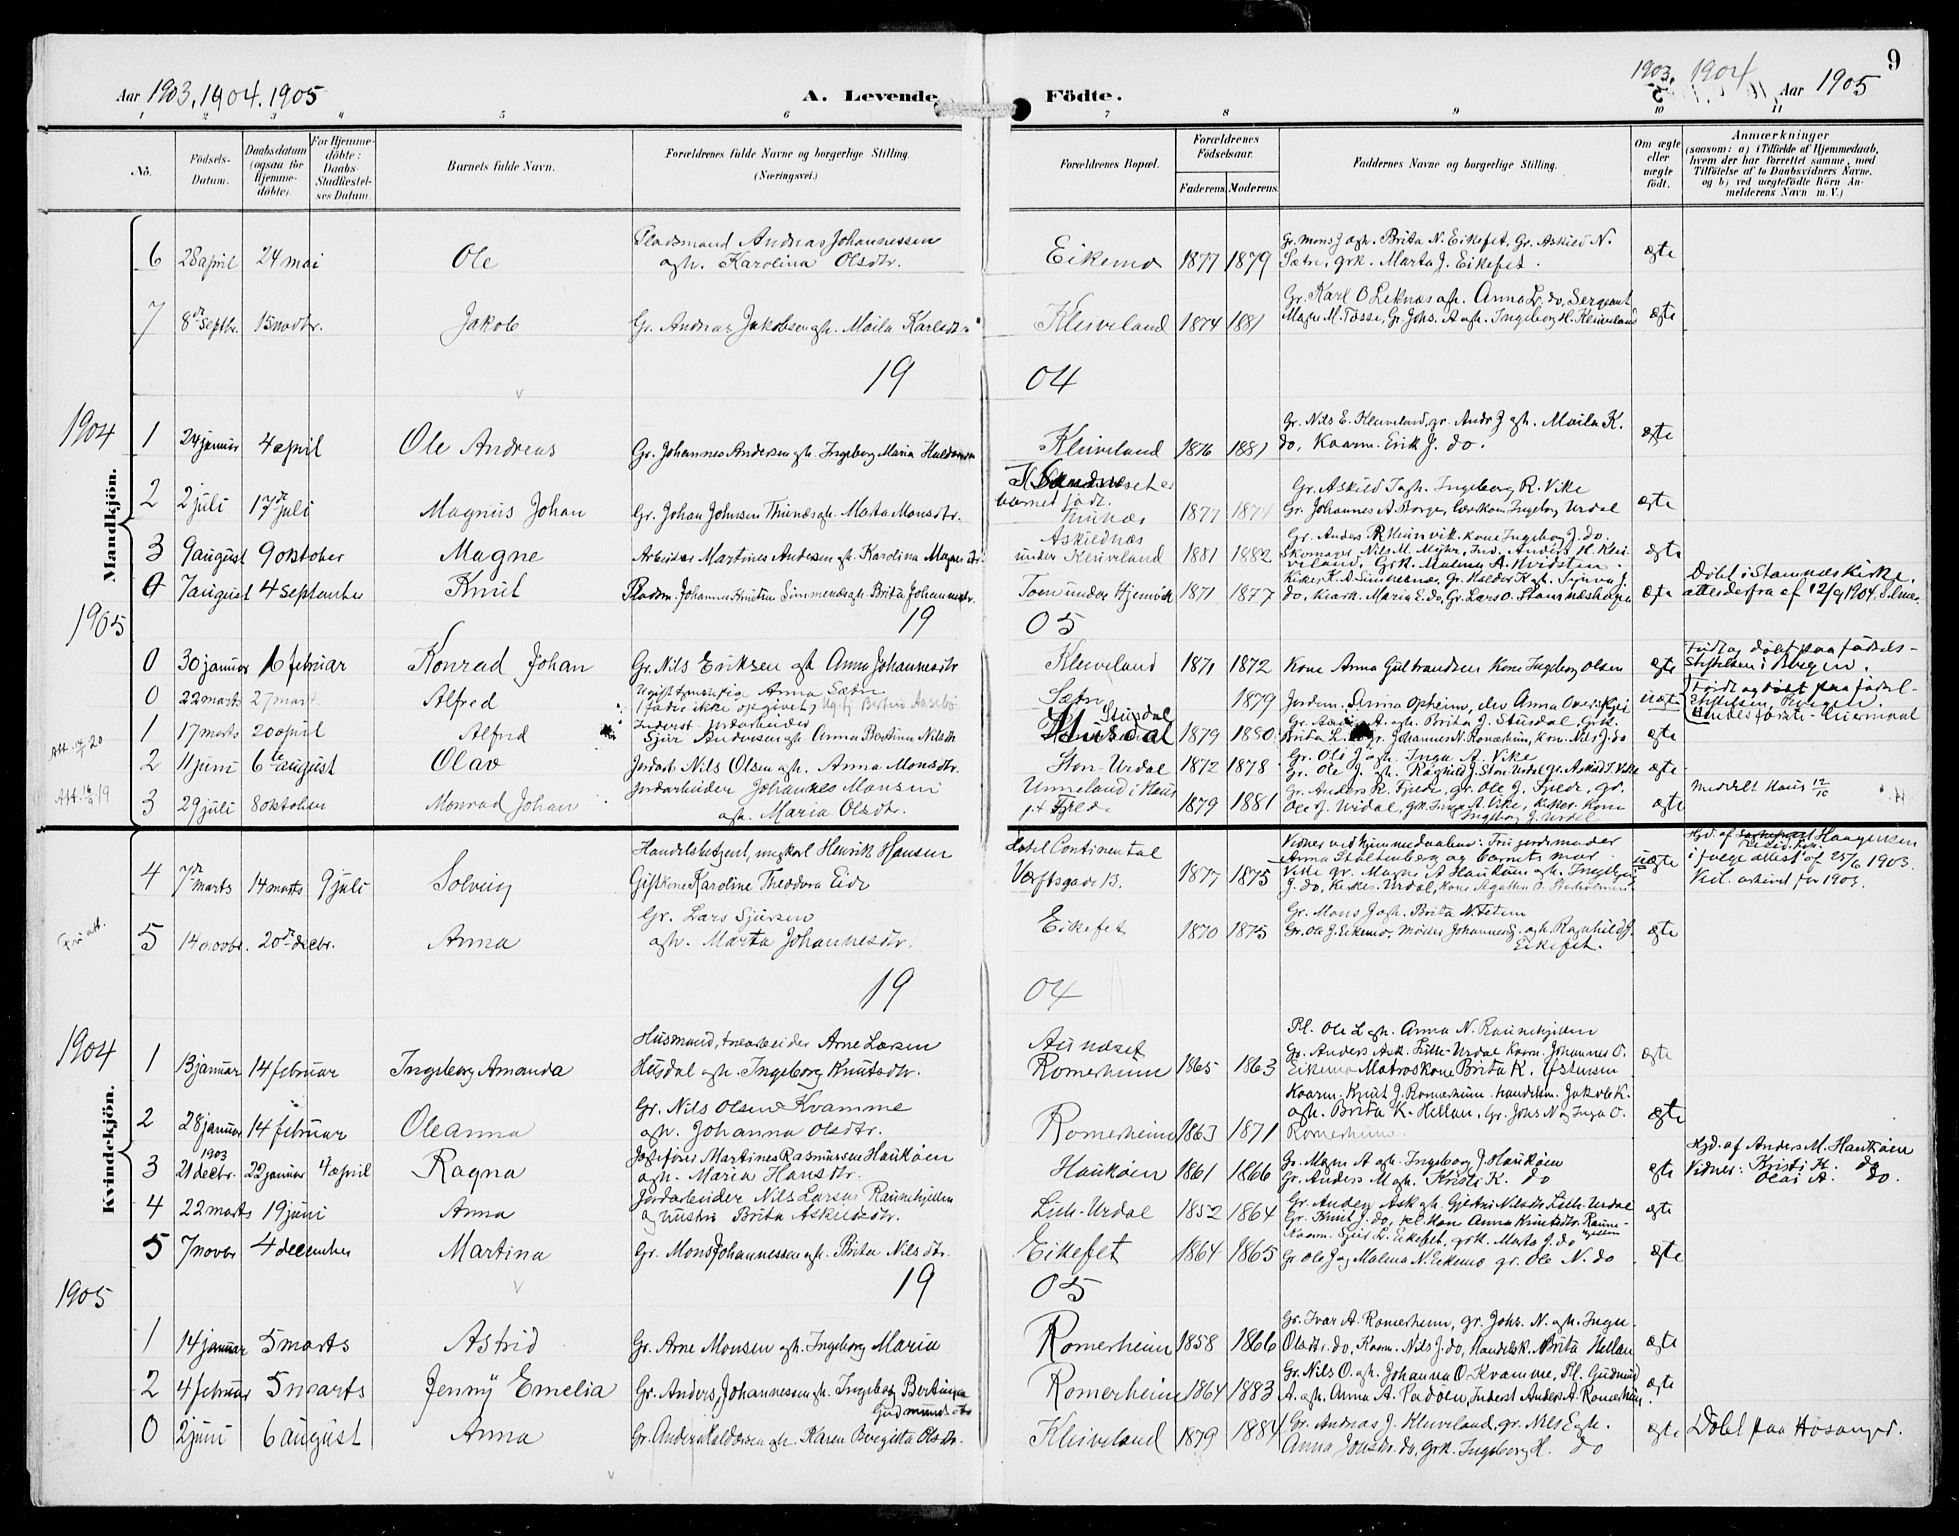 Aar 1903, 1904. 1905
A. Levende
Födte.
1903, 1904
Aar 1905
9
1 2 3 4 5 6 7 8 9 10 11
No.
Födsels-Datum.
Daabsdatum (ogsaa for Hjemmedöbte).
For Hjemmedöbte: Daabs-Stadfæstelses Datum.
Barnets fulde Navn.
Forældrenes fulde Navne og borgerlige Stilling. (Næringsvei.)
Forældrenes Bopæl.
Forældrenes Födselsaar.
Faderens. Moderens.
Faddernes Navne og borgerlige Stilling.
Om ægte eller uægte födt.
Anmærkninger
(saasom: a) i Tilfælde af Hjemmedaab,
hvem der har forrettet samme, med
Tilföielse af to Daabsvidners Navne.
og b) ved uægtefödte Börn An-
melderens Navn m. V.)
Mandkjön.
6 28 april 24 mai Ole Pladsmand Andreas Johannessen
ogh. Karolina Olsdtr. Eikemo 1877 1879 Gr. Mons J. ogh. Brita N. Eikefet, Gr. Askild N.
Sætre, grk. Marta J. Eikefet. ægte
7 8de septbr. 15 novbr. Jakob Gr. Andreas Jakobsen ogh. Maila Karlsdtr. Kleiveland 1874 1881 Gr. Karl O Leknæs ogh. Anna L. do, Sergeant
Magne M. Tosse, Gr. Johs. A ogh. Ingeborg H. Kleiveland ægte
19 04
1904
1 24 januar 4 april Ole Andreas Gr. Johannes Andersen ogh. Ingeborg Maria Kleiveland 1876 1881 Gr. Nils E. Kleiveland, gr. Andr J ogh. Maila K.
do, Kaarm. Erik J. do. ægte
2 2 juli 17de juli Magnus Johan Gr. Johan Johnsen Thunæs ogh. Marta Monsdtr.
barnet född. Thunæs 1877 1874 Gr. Askild J ogh. Ingeborg R. Vike
Gr. Johannes A Borge, Urdal ægte
3 9 august 9 oktober Magne Arbeider Martines Andersen ogh. Karolina Askildnæs
under Kleiveland 1881 1882 Gr. Anders R. Heimvik, kone Ingeborg J. do.
Skomager Nils M. Myhr, Ind. Anders H. Kleiveland, Grk. Malena A. ægte
0 7 august 4 september Knut Pladsm. Johannes Knutsen Simmenes ogh. Brita Johannesdtr. under Hjemvik 1871 1877 do, Maria E. do, Gr. Lars O. Stamnæshagen ægte Döbt i Stamnæs Kirke.
attest derfra af 12/9 1904.
1905
19 05
0 30 januar 16 februar Konrad Johan Gr. Nils Eriksen ogh Anna Johannesdtr Kleiveland 1871 1872 Kone Anna Gulbrandsen Kone Ingeborg Olsen ægte Född og döbt paa födsels-
stiftelsen i Bergen.
0 22 marts 27 marts Alfred Anna Sætre
(fader ikke opgivet) Sætre 1879 Jordem. Anna Opheim, uægte Född og döbt paa födsel-
stiftelsen, Bergen.
Att. 14/7 20
1 17 marts 20 april Alfred Inderst Jordarbeider
Sjur Andersen ogh Anna Bertina Nilsdtr Stusdal 1879 1880 ogh. Brita J. Stusdal, Grk.
Brita L. do gr. Johannes N. Romerheim, Kone Nils J. do ægte
2 11 juni 6te august Olav Jordarb Nils Olsen ogh. Anna Monsdtr. Stor-Urdal 1872 1878 Gr. Ole J ogh. Inga A. Vike
Gr. Ole J. ogh. Ragnhild J. Stor-Urdal gr. Askild J. Vike ægte
3 29 juli 8 oktober Monrad Johan Jordarbeider Johannes Monsen
ogh. Maria Olsdtr. Unneland i Haus
p.t Fjelde 1879 1881 Gr. Anders R. Fjelde, gr. Ole J. Fjelde, gr.
Ole J. Urdal, grk. Inga A. Vike, Kone
Ingeborg J. Urdal ægte Meddelt Haus 12/10
4 7de marts 14 marts 9 juli Solveig Handelsbetjent, ungkarl Henrik Hansen
Giftkone Karoline Theodora Eide Hotel Continental
Værftsgade 13. 1877 1875 Vidner ved hjemmedaaben: Fru jordemoder
Anna Stoltenberg og barnets mor.
Vike gr. Magne A Haukøen ogh. Ingeborg
J. do, Urdal, uægte Hjd. af Haagensen
ifølge attest af 25/6 1903.
Vid. arkivet for 1903.
Fri att.
5 14 novbr. 20de decbr. Anna Gr. Lars Sjursen
ogh. Marta Johannesdtr. Eikefet 1870 1875 Gr. Mons J ogh. Brita N.
Gr. Ole J. Eikemo, Møller Johannes ogh. Ragnhild J.
Eikefet. ægte
19 04
1904
Kvindekjön.
1 13 januar 14 februar Ingeborg Amanda Husmand, træarbeider Arne Larsen
Helsdal ogh. Ingeborg Knutsdtr. Romerheim 1865 1863 Pl. Ole L ogh. Anna N. Raunehjellen
Gr. Anders Ask. Lille-Urdal Kaarm. Johannes O.
Eikemo Matroskone Brita K. ægte
2 28 januar 14 februar Oleanna Gr. Nils Olsen Kvamme
ogh. Johanna Olsdtr. Romerheim 1863 1871 Kaarm. Knut J. Romerheim, Handelsm. Jakob K.
ogh. Brita K. Hellan, Gr. Johs N og Inga O.
Romerheim. ægte
3 21 decbr. 1903 22 januar 4 april Ragna Martines Rasmussen Haukøen
ogh. Maria Hansdtr. Haukøen 1861 1866 Gr. Magne A ogh. Ingeborg J. Haukøen
Gr. Anders M ogh. Kristi K. do ægte Hjd. af Anders M. Haukøen
Vidner: Kristi K. do
Olai A. do.
4 22 marts 19 juni Anna Jordarbeider Nils Larsen Raunehjellen
og hustru Brita Askildsdtr. Lille-Urdal 1852 1864 Gr. Anders Ask ogh. Gjertrud Nilsdtr Lille-Urdal
Gr. Knut J. do, pl. kone Anna Knutsdtr. Raune-
hjellen ægte
5 7 novbr 4 december Martina Gr. Mons Johannessen ogh. Brita Nilsdtr. Eikefet 1864 1865 Kaarm. Sjur L. Eikefet, grk. Marta J. do
Gr Ole J og Malena N. Eikemo gr. Ole N. do ægte
1905
19 05
1 14 januar 5 marts Astrid Gr. Arne Monsen ogh. Ingeborg Maria Romerheim 1858 1866 Gr. Ivar A. Romerheim, gr. Johs. N. ogh. Inga
Olsdtr. do, Kaarm. Nils J. do, Handelsk. Brita Hellan ægte
2 4 februar 5 marts Jenny Emelia Gr. Anders Johannessen ogh. Ingeborg Bertina
Gudmundsdtr Romerheim 1864 1883 Gr. Nils O. ogh. Johanna O. Kvamme, Pl. Gudmund
A. ogh. Anna A. Padøen, Inderst Anders A. Romerheim. ægte
0 2 juni 6 august Anna Gr. Anders Haldorsen ogh. Karen Bergitta Olsdtr. Kleiveland 1879 1884 Gr. Andreas J. Kleiveland, gr. Nils E ogh.
Anna Jonsdtr. do, grk. Ingeborg H. do ægte Döbt paa Hosanger.